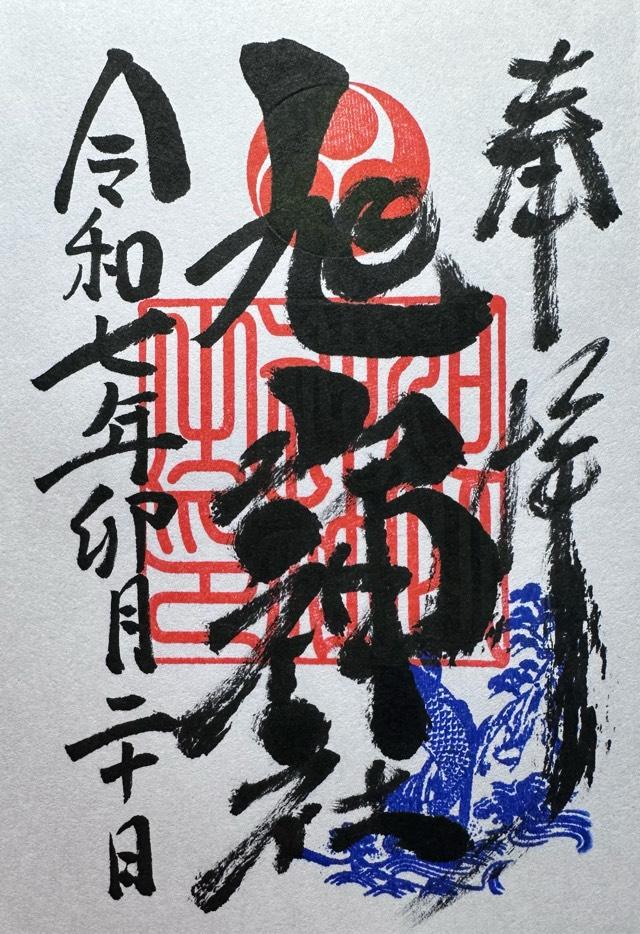 奉拝
旭神社
令和七年卯月二十日